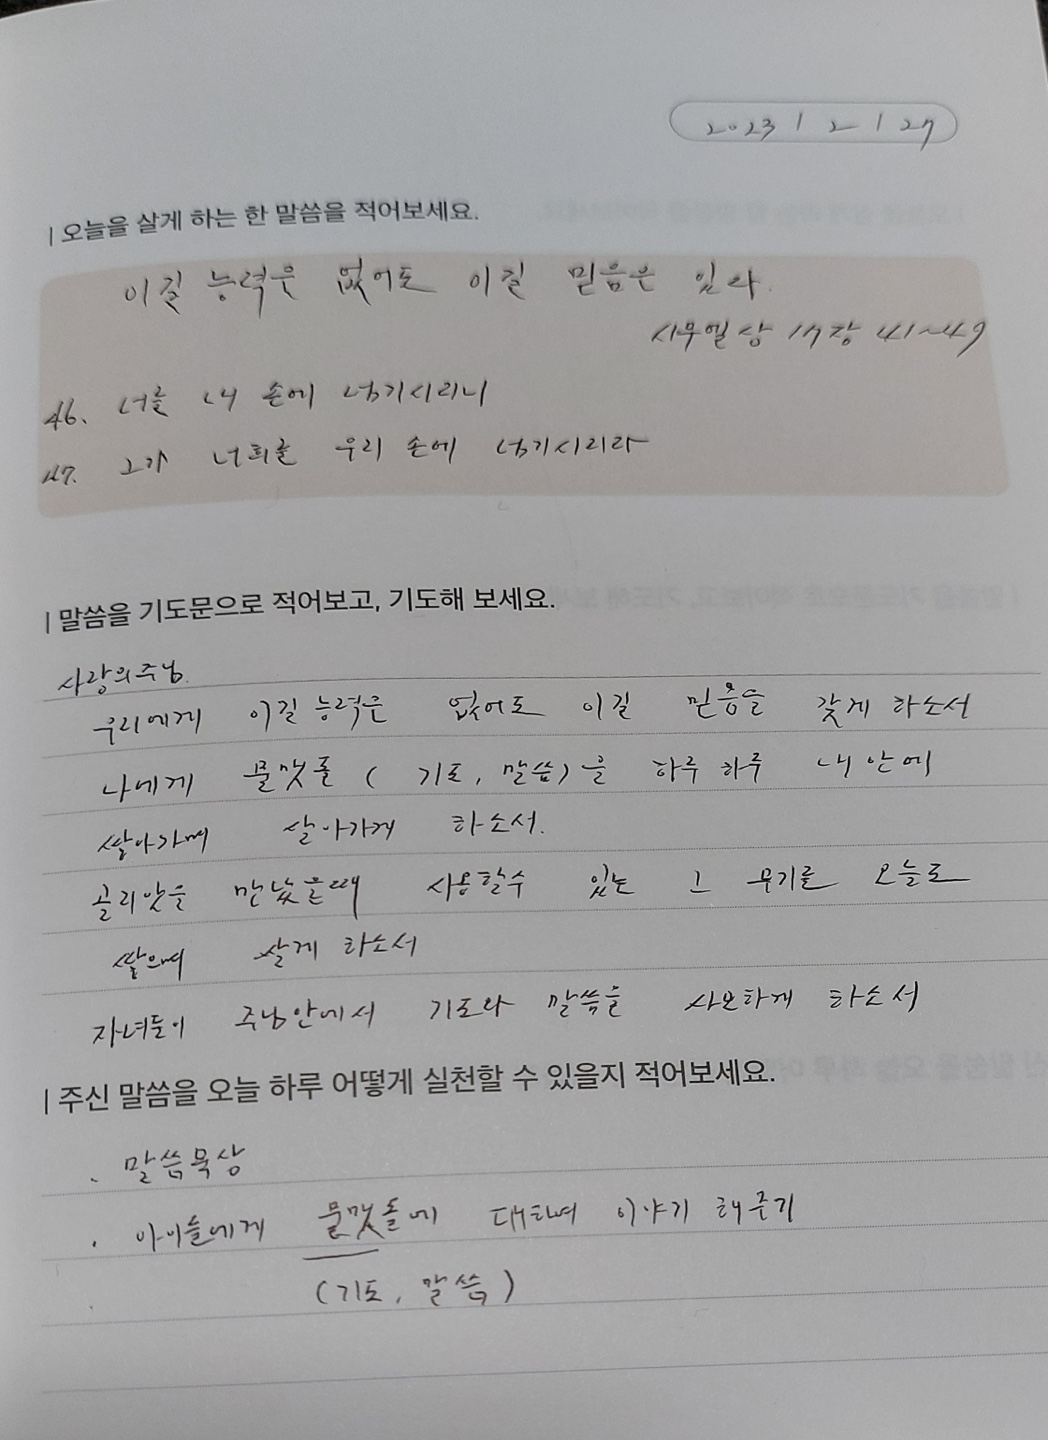 2023 / 2 / 27
| 오늘을 살게 하는 한 말씀을 적어보세요.
이길 능력은 없어도 이길 믿음은 있다.
사무엘상 17장 41~49
46. 너를 내 손에 넘기시리니
47. 그가 너희를 우리 손에 넘기시리라
| 말씀을 기도문으로 적어보고, 기도해 보세요.
사랑의주님.
우리에게 이길 능력은 없어도 이길 믿음을 갖게 하소서
나에게 물맷돌 ( 기도, 말씀)을 하루 하루 내 안에
쌓아가며 살아가게 하소서.
골리앗을 만났을때 사용할수 있는 그 무기를 오늘도
쌓으며 살게 하소서
자녀들이 주님안에서 기도와 말씀을 사모하게 하소서
| 주신 말씀을 오늘 하루 어떻게 실천할 수 있을지 적어보세요.
. 말씀묵상
. 아이들에게 물맷돌에 대하여 이야기 해주기
(기도, 말씀)